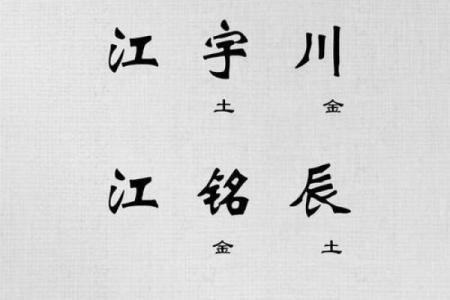 江 宇 川
土 金
江 铭 辰
金 土